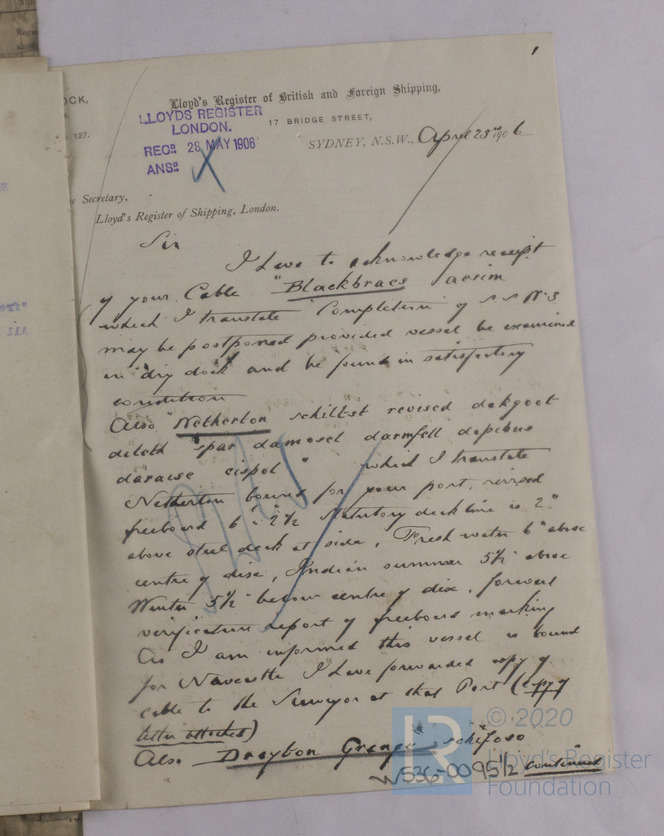 OCK,
127.
1
Lloyd's Register of British and Foreign Shipping,
LLOYDS REGISTER
LONDON.
RECD. 26 MAY 1906
ANSD.
17 BRIDGE STREET,
SYDNEY, N.S.W., April 23rd 1906
Secretary,
Lloyd's Register of Shipping, London.
Sir
I have to acknowledge receipt
of your Cable "Blackbraes
which I translate "Completion of S S No 3
may be postponed provided vessel be examined
in "dry dock" and be found in satisfactory
condition
Also "Netherton schiltst revised dekgoot
deloth spar damosel darmfell depibus
daraese cispol" which I translate
Netherton bound for your port, revised
freeboard 6'-2½ Statutory deck line is 2"
above steel deck at side, Fresh water 6" above
centre of disc, Indian summer 5½" above
Winter 5½" below centre of disc, forward
verification report of freeboard marking
As I am informed this vessel is bound
for Newcastle I have forwarded copy of
cable to the Surveyor at that Port (copy of
letter attached)
Also Drayton Grange schifoso
continued
W536-0095 1/2
LR
© 2020
Lloyd's Register
Foundation